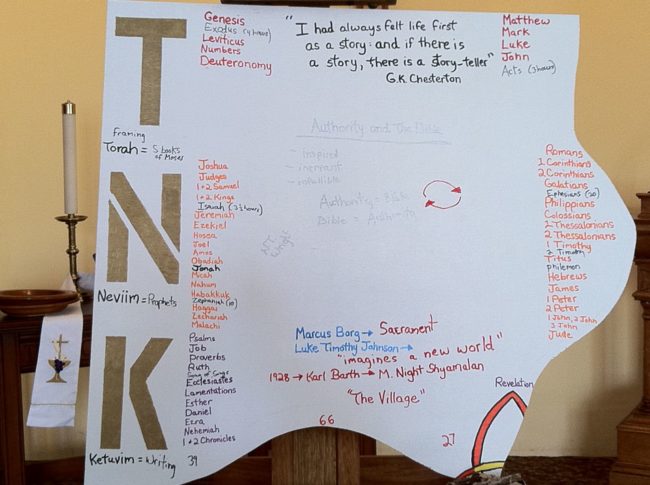 T
framing
Torah = 5 books
of Moses
Genesis
Exodus (4 hours)
Leviticus
Numbers
Deuteronomy
"I had always felt life first
as a story: and if there is
a story, there is a story-teller"
G.K. Chesterton
Matthew
Mark
Luke
John
Acts (3 hours)
N
Neviim = Prophets
Joshua
Judges
1 + 2 Samuel
1 + 2 Kings
Isaiah (3 ½ hours)
Jeremiah
Ezekiel
Hosea
Joel
Amos
Obadiah
Jonah
Micah
Nahum
Habakkuk
Zephaniah (10)
Haggai
Zechariah
Malachi
Authority and The Bible
- inspired
inerrant
infallible
Authority = Bible
Bible = Authority
N.T. Wright
Romans
1 Corinthians
2 Corinthians
Galatians
Ephesians (20)
Philippians
Colossians
1 Thessalonians
2 Thessalonians
1 Timothy
2 Timothy
Titus
philemon
Hebrews
James
1 Peter
2 Peter
1 John, 2 John
3 John
Jude
K
Ketuvim = Writing
Psalms
Job
Proverbs
Ruth
Song of Songs
Ecclesiastes
Lamentations
Esther
Daniel
Ezra
Nehemiah
1 + 2 Chronicles
39
Marcus Borg → Sacrament
Luke Timothy Johnson →
"imagines a new world"
1928 → Karl Barth → M. Night Shyamalan
"The Village"
66
27
Revelation